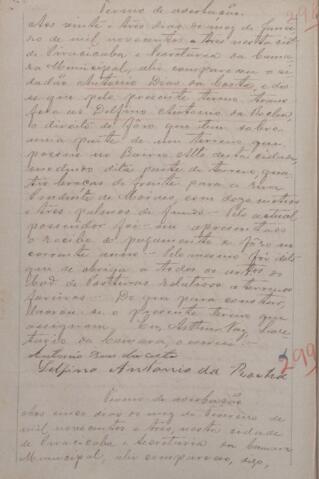 Termo de averbação.
296
Aos vinte e três dias do mez de Janei-
ro de mil novecentos e três nesta cida-
de de Piracicaba e Secretaria da Cama-
ra Municipal, ahi compareceu o ci-
dadão Antonio Dias da Costa, e dis-
se que pelo presente termo trans-
feria a Delfino Antonio da Rocha,
o direito de fôro que tem sobre
uma parte de um terreno que
possue no Bairro Alto desta cidade,
medindo dita parte de terreno, qua-
tro braças de frente para a rua
Prudente de Moraes, com doze metros
e três palmos de fundo. Pelo actual
possuidor foi-me apresentado
o recibo de pagamento de fôro no
corrente anno. Pelo mesmo foi dito
que se obriga a todos os artigos do
Cod. de Posturas relativos a terrenos
foreiros. De que para constar,
lavrou-se o presente termo que
assignam. Eu, Arthur Vaz, Secre-
tario da Camara, o escrevi.
Antonio Dias da Costa
Delfino Antonio da Rocha
299
Termo de averbação
Aos cinco dias do mez de Fevereiro de
mil novecentos e três, nesta cidade
de Piracicaba e Secretaria da Camara
Municipal, ahi compareceu, digo,